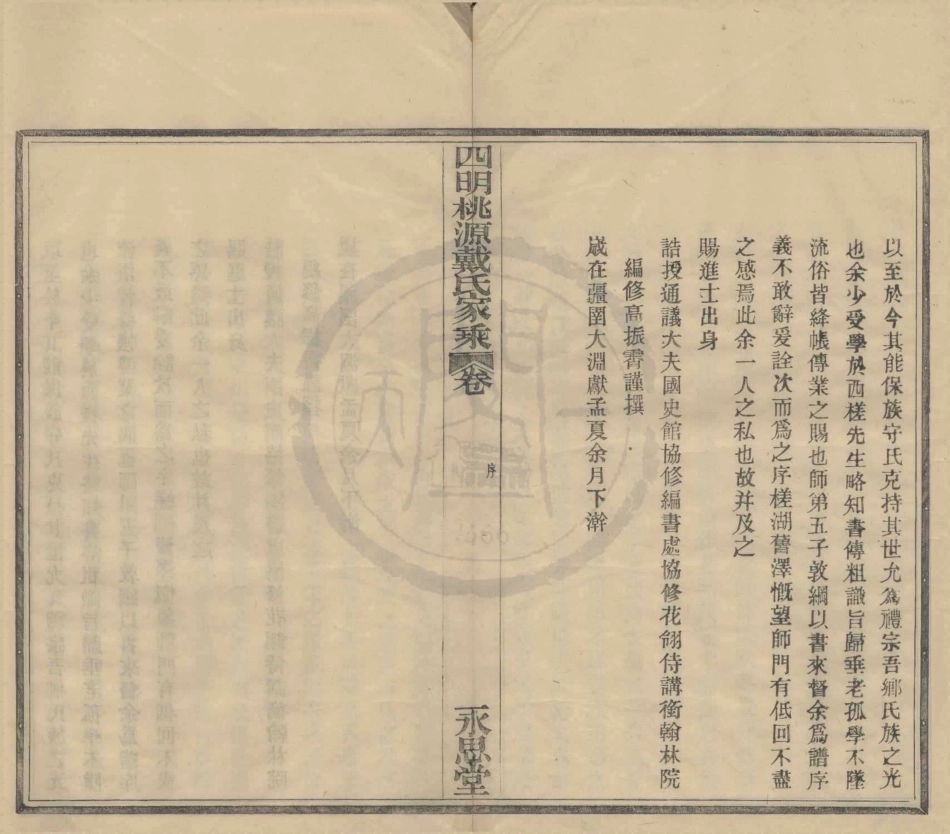 以至於今其能保族守氏克持其世允為禮宗吾鄉氏族之光
也余少受學於西槎先生略知書傳粗識旨歸垂老孤學不墜
流俗皆絳帳傳業之賜也師第五子敦綱以書來督余爲譜序
義不敢辭爰詮次而爲之序槎湖舊澤慨望師門有低回不盡
之感焉此余一人之私也故并及之
賜進士出身
誥授通議大夫國史館協修編書處協修花翎侍講銜翰林院
編修高振霄謹撰
嵗在彊圉大淵獻孟夏余月下澣
四明桃源戴氏家乘 卷
序
永思堂